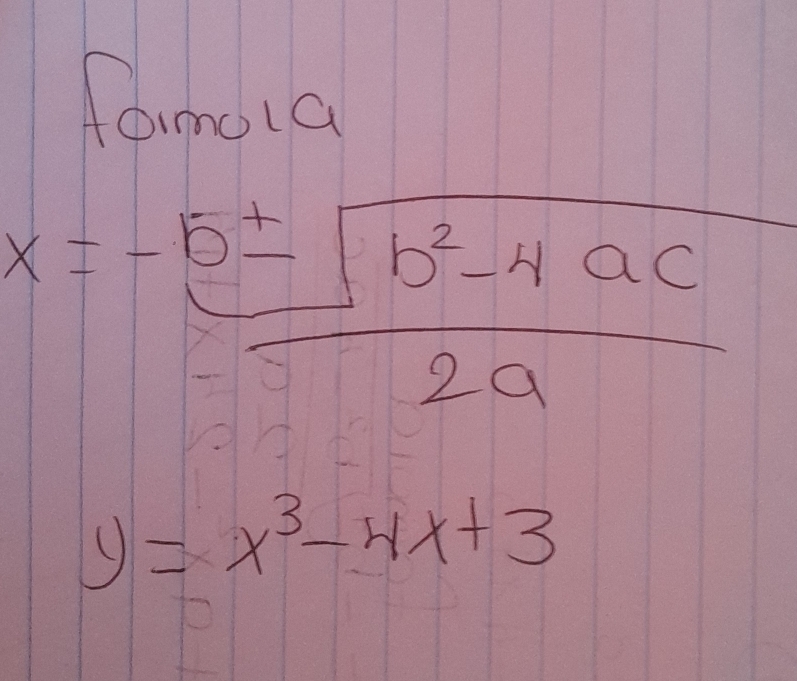 formola
x = -b ± √b² - 4 ac
2a
y = x³ - 4x + 3